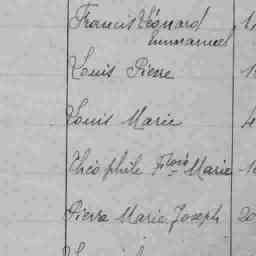 Francis Léonard
Emmanuel
Louis Pierre
Louis Marie
Théophile Floré Marie
Pierre Marie Joseph 20